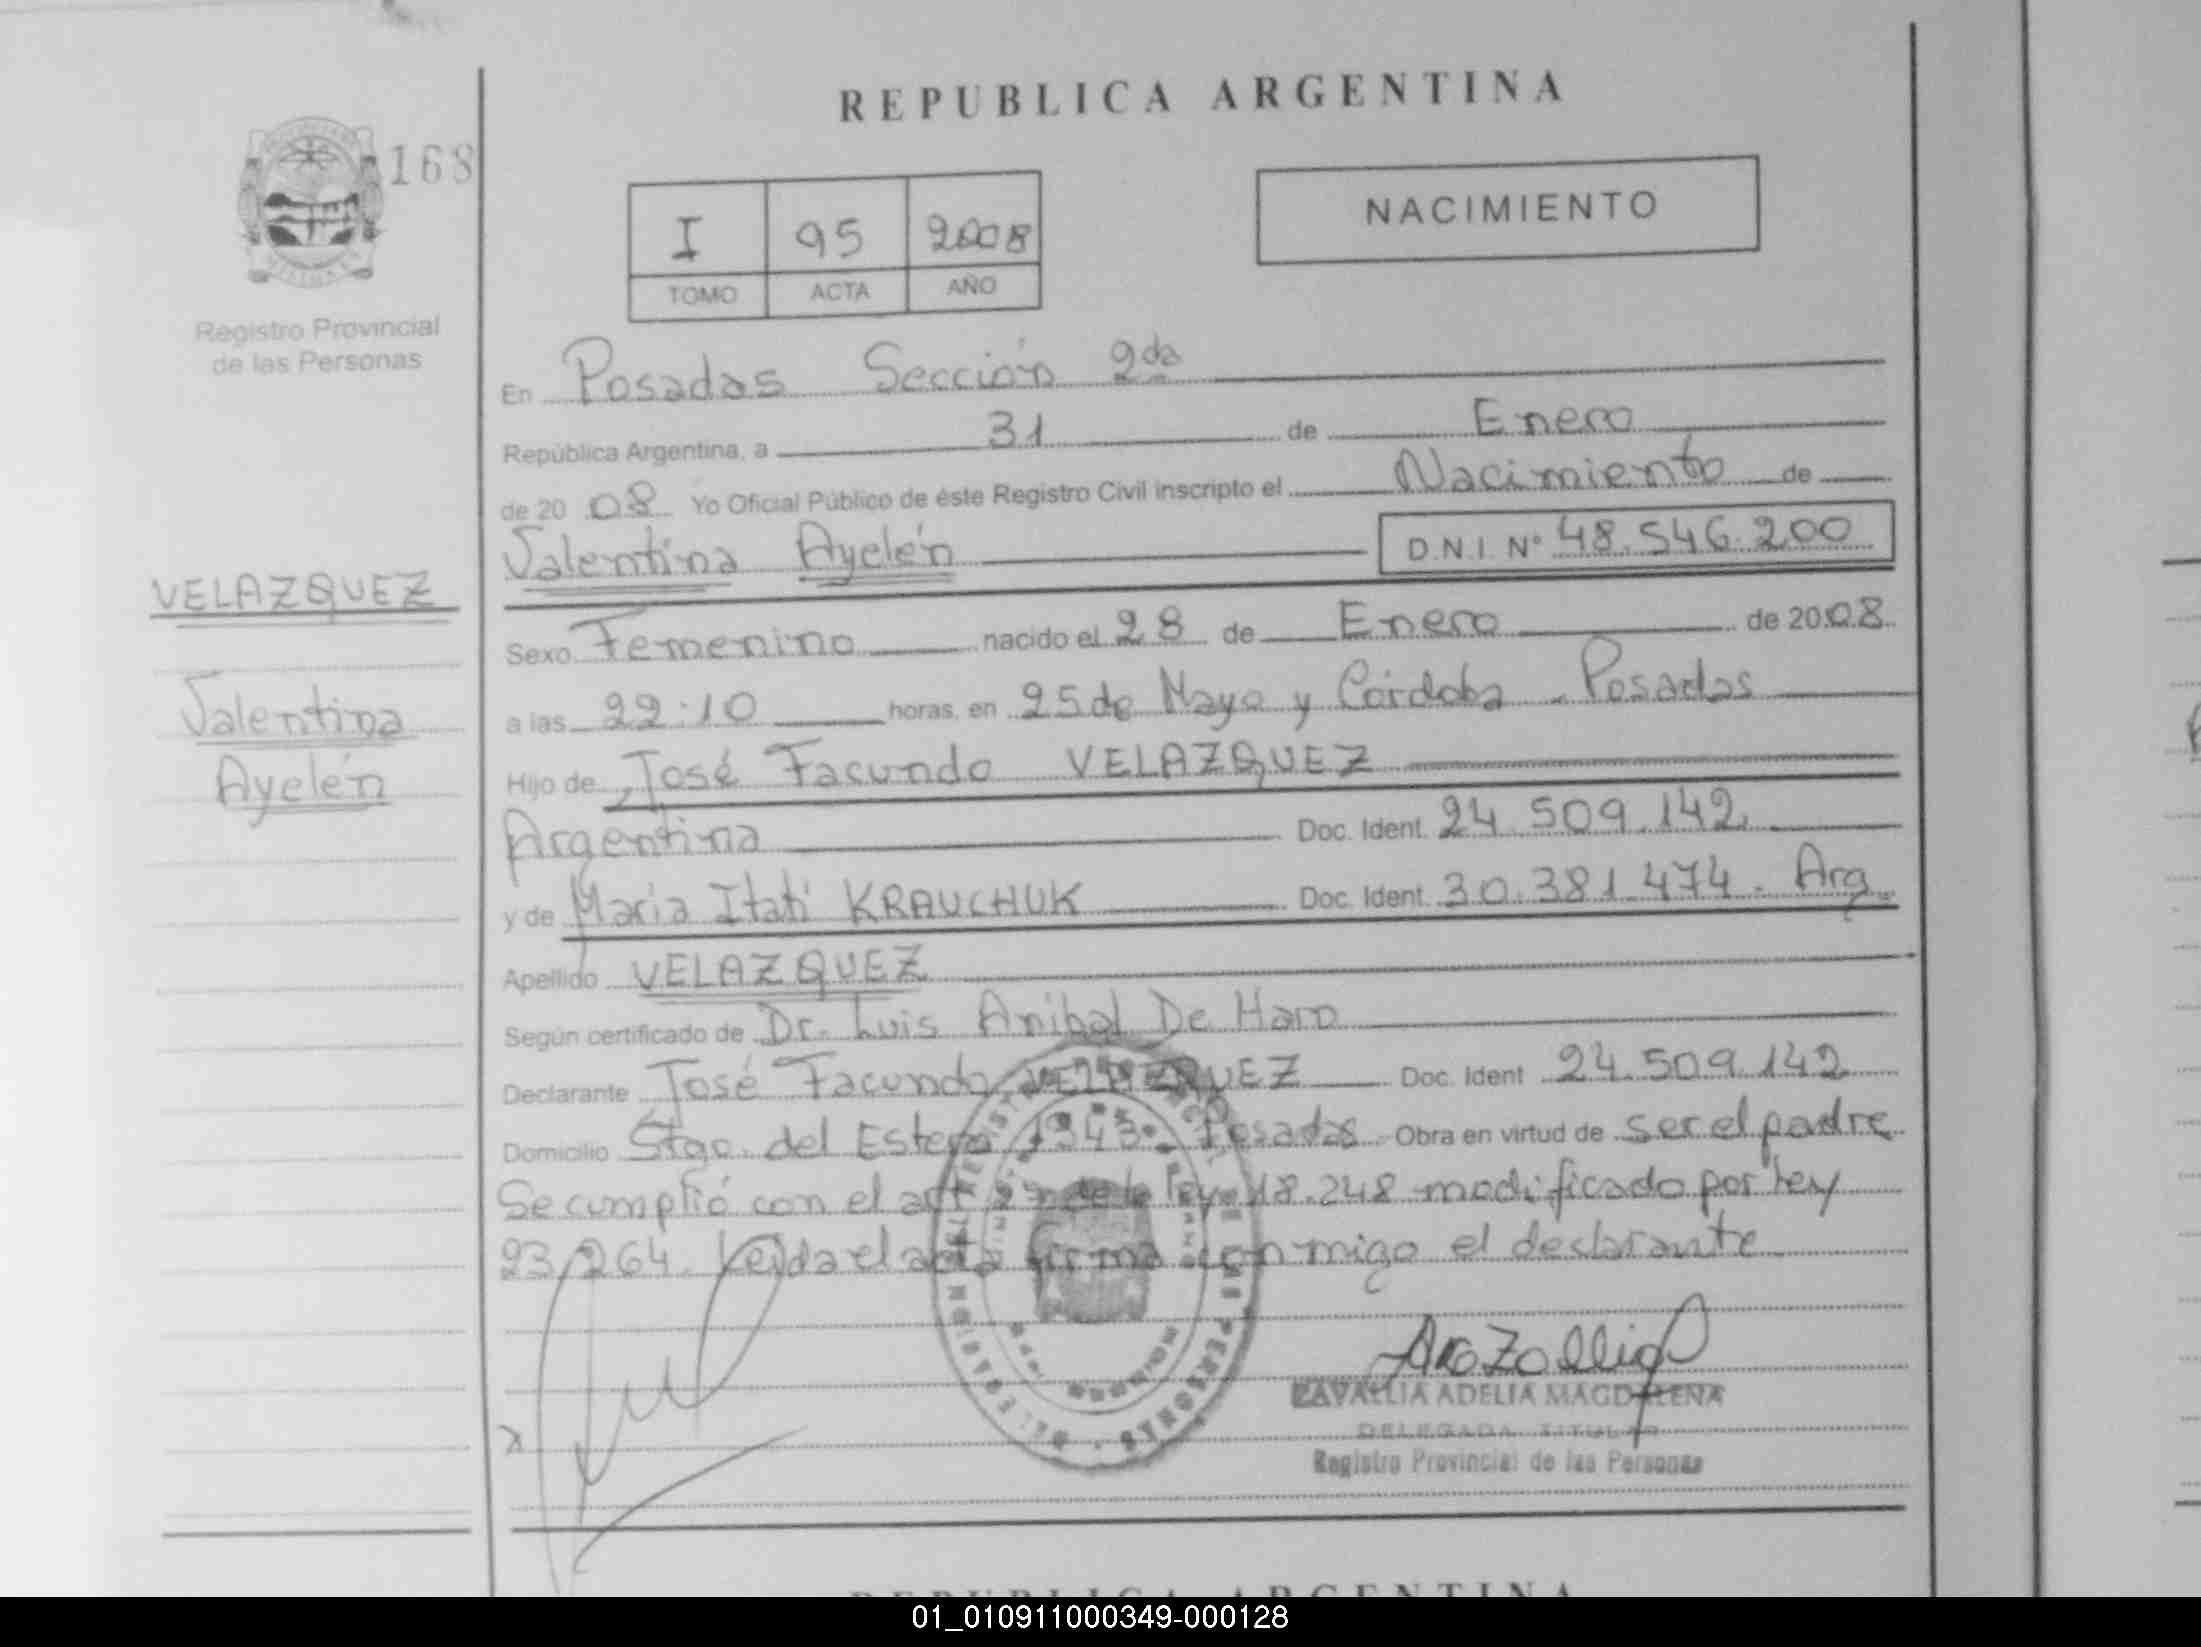 REPUBLICA ARGENTINA
168
I 95 2008
TOMO ACTA AÑO
NACIMIENTO
Registro Provincial
de las Personas
En Posadas Sección 2da
República Argentina, a 31 de Enero
de 20 08 Yo Oficial Público de éste Registro Civil inscripto el Nacimiento de
Valentina Ayelén D.N.I. Nº 48.546.200
VELAZQUEZ
Valentina
Ayelén
Sexo Femenino nacido el 28 de Enero de 20 08
a las 22:10 horas, en 25 de Mayo y Córdoba - Posadas
Hijo de José Facundo VELAZQUEZ
Argentina Doc. Ident. 24.509.142
y de Maria Itatí KRAUCHUK Doc. Ident. 30.381.474. Arg.
Apellido VELAZQUEZ
Según certificado de Dr. Luis Anibal De Haro
Declarante José Facundo VELAZQUEZ Doc. Ident 24.509.142
Domicilio Stgo. del Estero 1343. Posadas Obra en virtud de ser el padre
Se cumplió con el art de la ley 18.248 modificado por ley
23.264. Leida el acta firma conmigo el declarante
CAVALLIA ADELIA MAGDALENA
DELEGADA TITULAR
Registro Provincial de las Personas
REPUBLICA ARGENTINA
01_010911000349-000128